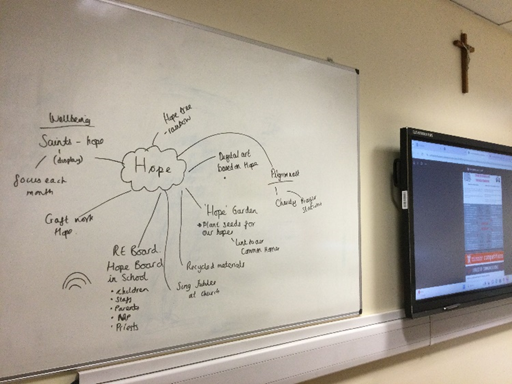 Wellbeing
Saints - hope
(display)
focus each
month
Craft work
Hope
Hope tree
- rainbow
Hope
Digital art
based on Hope
Pilgrimage
Charity Prayer
Stations
'Hope' Garden
Plant seeds for
our hope
Link to our
Common Home
Recycled materials
Sing Jubilee
at church
RE Board
Hope Board
in School
• children
• Staff
• Parents
• Priests